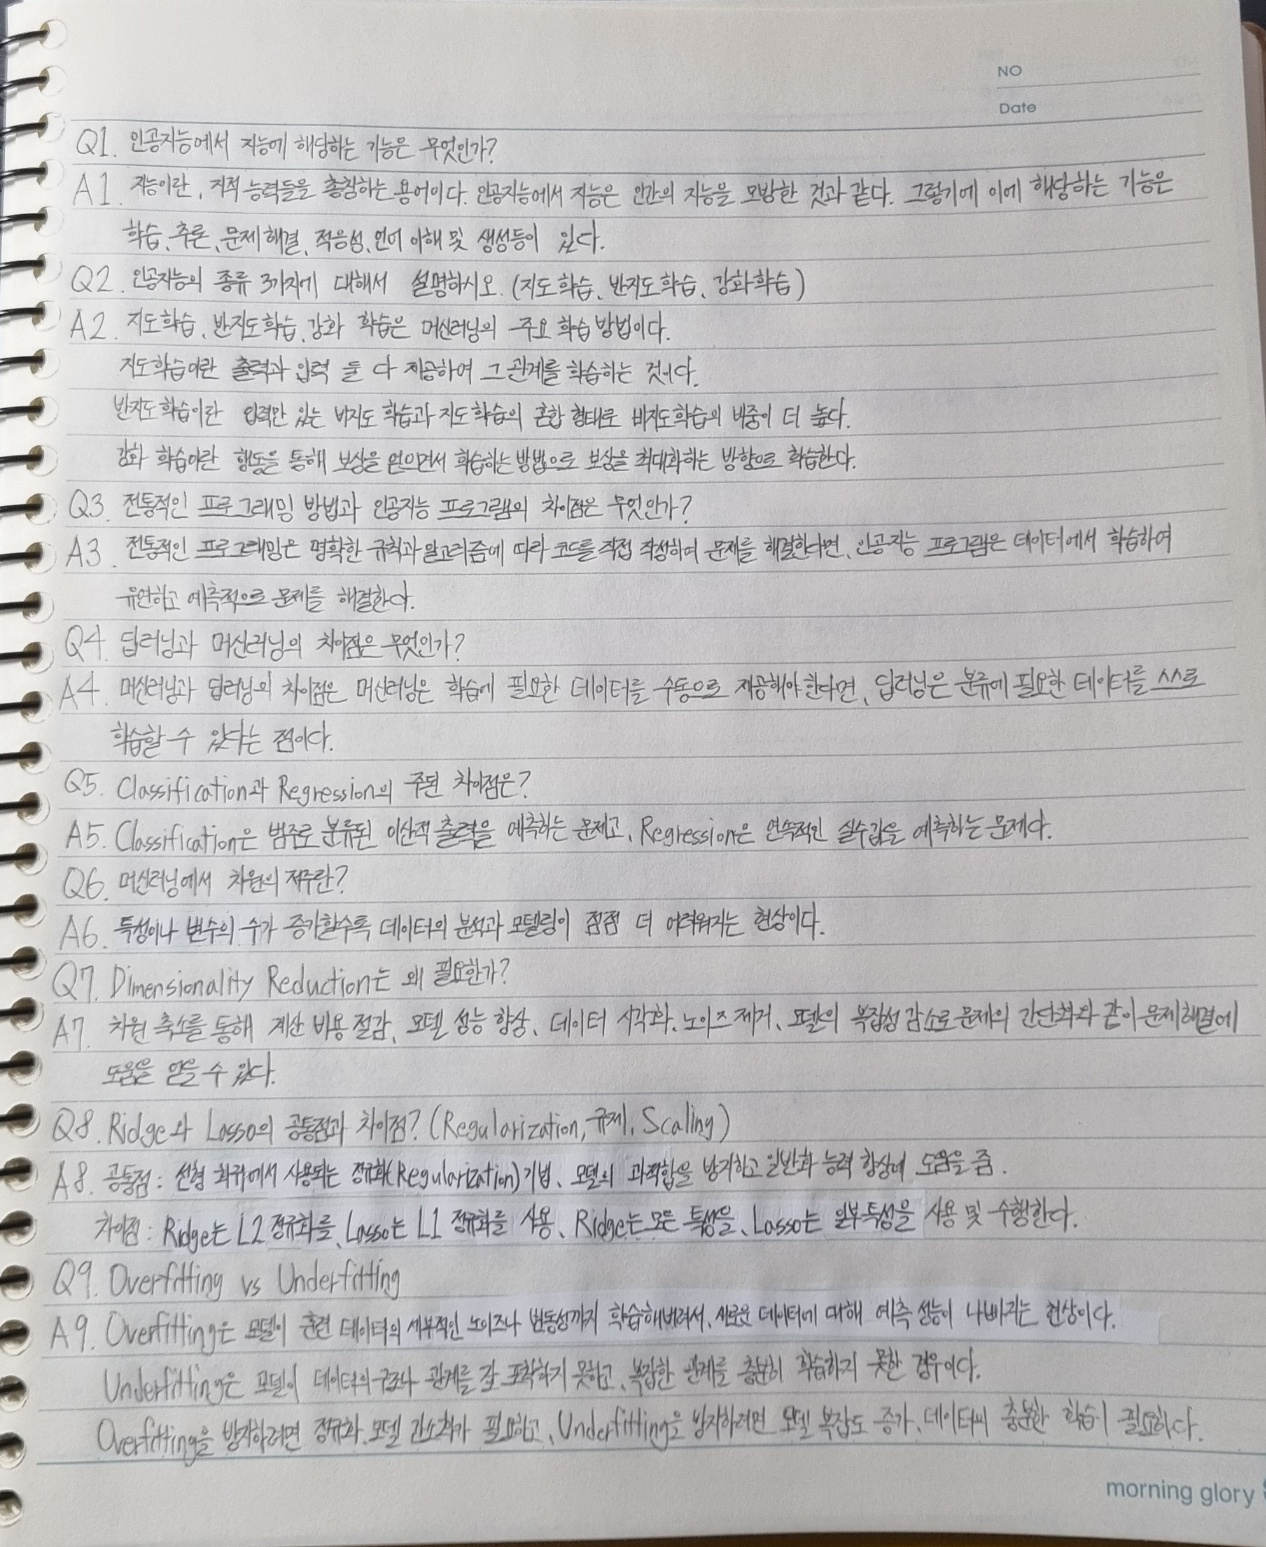 NO
Date
Q1. 인공지능에서 지능에 해당하는 기능은 무엇인가?
A1. 지능이란, 지적 능력들을 총칭하는 용어이다. 인공지능에서 지능은 인간의 지능을 모방한 것과 같다. 그렇기에 이에 해당하는 기능은
학습, 추론, 문제 해결, 적응성, 언어 이해 및 생성등이 있다.
Q2. 인공지능의 종류 3가지에 대해서 설명하시오. (지도 학습, 반지도 학습, 강화 학습)
A2. 지도 학습, 반지도 학습, 강화 학습은 머신러닝의 주요 학습 방법이다.
지도 학습이란 출력과 입력 둘 다 제공하여 그 관계를 학습하는 것이다.
반지도 학습이란 입력만 있는 비지도 학습과 지도 학습의 혼합 형태로 비지도학습의 비중이 더 높다.
강화 학습이란 행동을 통해 보상을 얻으면서 학습하는 방법으로 보상을 최대화하는 방향으로 학습한다.
Q3. 전통적인 프로그래밍 방법과 인공지능 프로그램의 차이점은 무엇인가?
A3. 전통적인 프로그래밍은 명확한 규칙과 알고리즘에 따라 코드를 직접 작성하여 문제를 해결한다면, 인공지능 프로그램은 데이터에서 학습하여
유연하고 예측적으로 문제를 해결한다.
Q4. 딥러닝과 머신러닝의 차이점은 무엇인가?
A4. 머신러닝과 딥러닝의 차이점은 머신러닝은 학습에 필요한 데이터를 수동으로 제공해야 한다면, 딥러닝은 분류에 필요한 데이터를 스스로
학습할 수 있다는 점이다.
Q5. Classification과 Regression의 주된 차이점은?
A5. Classification은 범주로 분류된 이산적 출력을 예측하는 문제고, Regression은 연속적인 실수값을 예측하는 문제다.
Q6. 머신러닝에서 차원의 저주란?
A6. 특성이나 변수의 수가 증가할수록 데이터의 분석과 모델링이 점점 더 어려워지는 현상이다.
Q7. Dimensionality Reduction는 왜 필요한가?
A7. 차원 축소를 통해 계산 비용 절감, 모델 성능 향상, 데이터 시각화, 노이즈 제거, 모델의 복잡성 감소로 문제의 간단화와 같이 문제해결에
도움을 얻을 수 있다.
Q8. Ridge와 Lasso의 공통점과 차이점? (Regularization, 규제, Scaling)
A8. 공통점 : 선형 회귀에서 사용되는 정규화(Regularization) 기법, 모델의 과적합을 방지하고 일반화 능력 향상에 도움을 줌.
차이점 : Ridge는 L2 정규화를, Lasso는 L1 정규화를 사용, Ridge는 모든 특성을, Lasso는 일부 특성을 사용 및 수행한다.
Q9. Overfitting vs Underfitting
A9. Overfitting은 모델이 훈련 데이터의 세부적인 노이즈나 변동성까지 학습해버려서, 새로운 데이터에 대해 예측 성능이 나빠지는 현상이다.
Underfitting은 모델이 데이터의 구조나 관계를 잘 포착하지 못하고, 복잡한 관계를 충분히 학습하지 못한 경우이다.
Overfitting을 방지하려면 정규화, 모델 간소화가 필요하고, Underfitting을 방지하려면 모델 복잡도 증가, 데이터의 충분한 학습이 필요하다.
morning glory